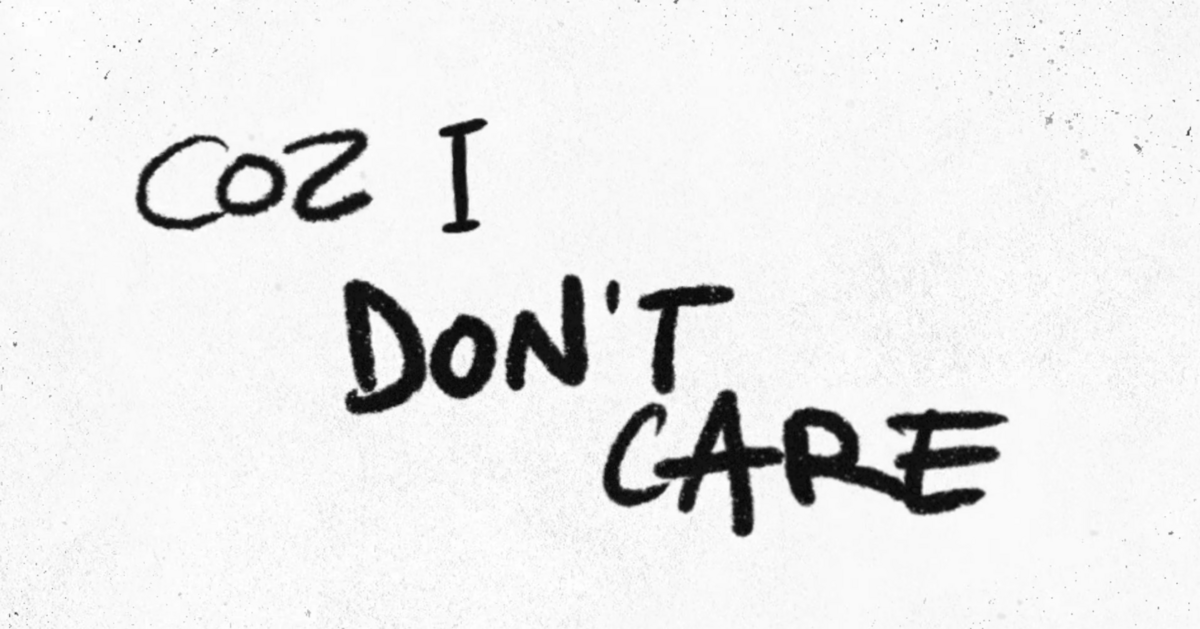 COZ I
DON'T
CARE